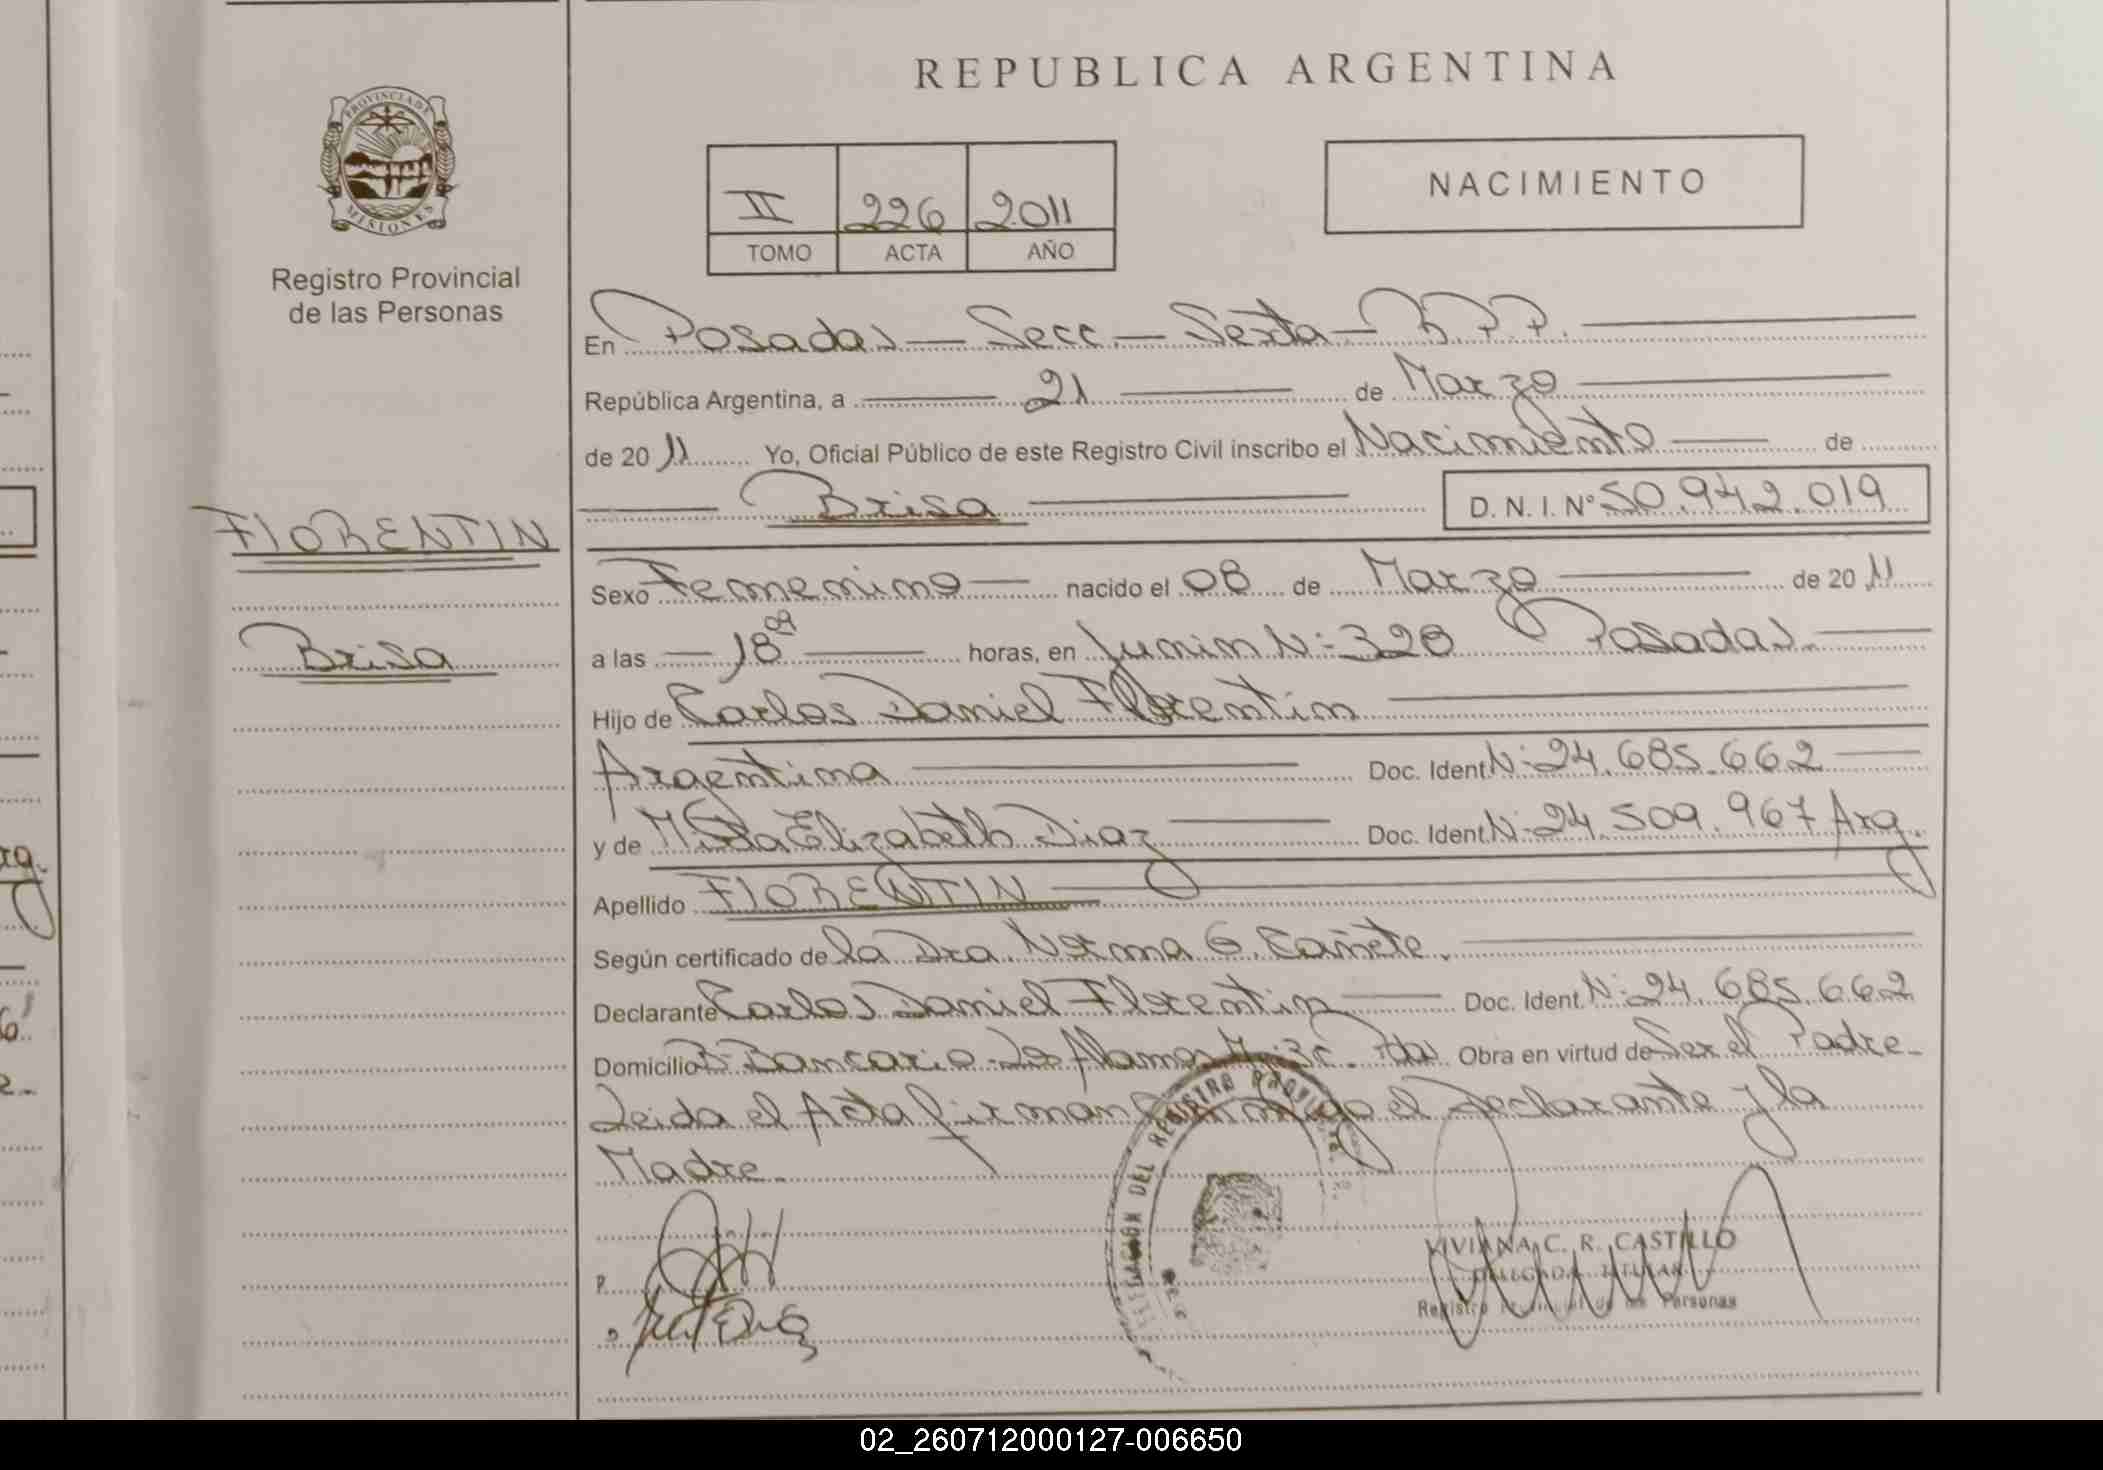 REPUBLICA ARGENTINA
PROVINCIA DE
MISIONES
Registro Provincial
de las Personas
II 226 2011
TOMO ACTA AÑO
NACIMIENTO
En Posadas – Secc. – Sexta – R.P.P.
República Argentina, a 21 de Marzo
de 2011 Yo, Oficial Público de este Registro Civil inscribo el Nacimiento de
Brisa D. N. I. N° 50.942.019
FLORENTIN
Brisa
Sexo Femenino nacido el 08 de Marzo de 2011
a las 18 09 horas, en Junin N: 328 Posadas.
Hijo de Carlos Daniel Florentin
Argentina Doc. Ident. N: 24.685.662
y de Elizabeth Diaz Doc. Ident. N: 24.509.967 Arg.
Apellido FLORENTIN
Según certificado de la Dra. Norma G. Cañete.
Declarante Carlos Daniel Florentin Doc. Ident. N: 24.685.662
Domicilio B: Bancario Los Alamos Pdas Obra en virtud de Ser el Padre
Leida el Acta firman conmigo el Declarante y la
Madre.
DEL REGISTRO
VIVIANA C. R. CASTILLO
DELEGADA TITULAR
Registro Provincial de las Personas
02_260712000127-006650